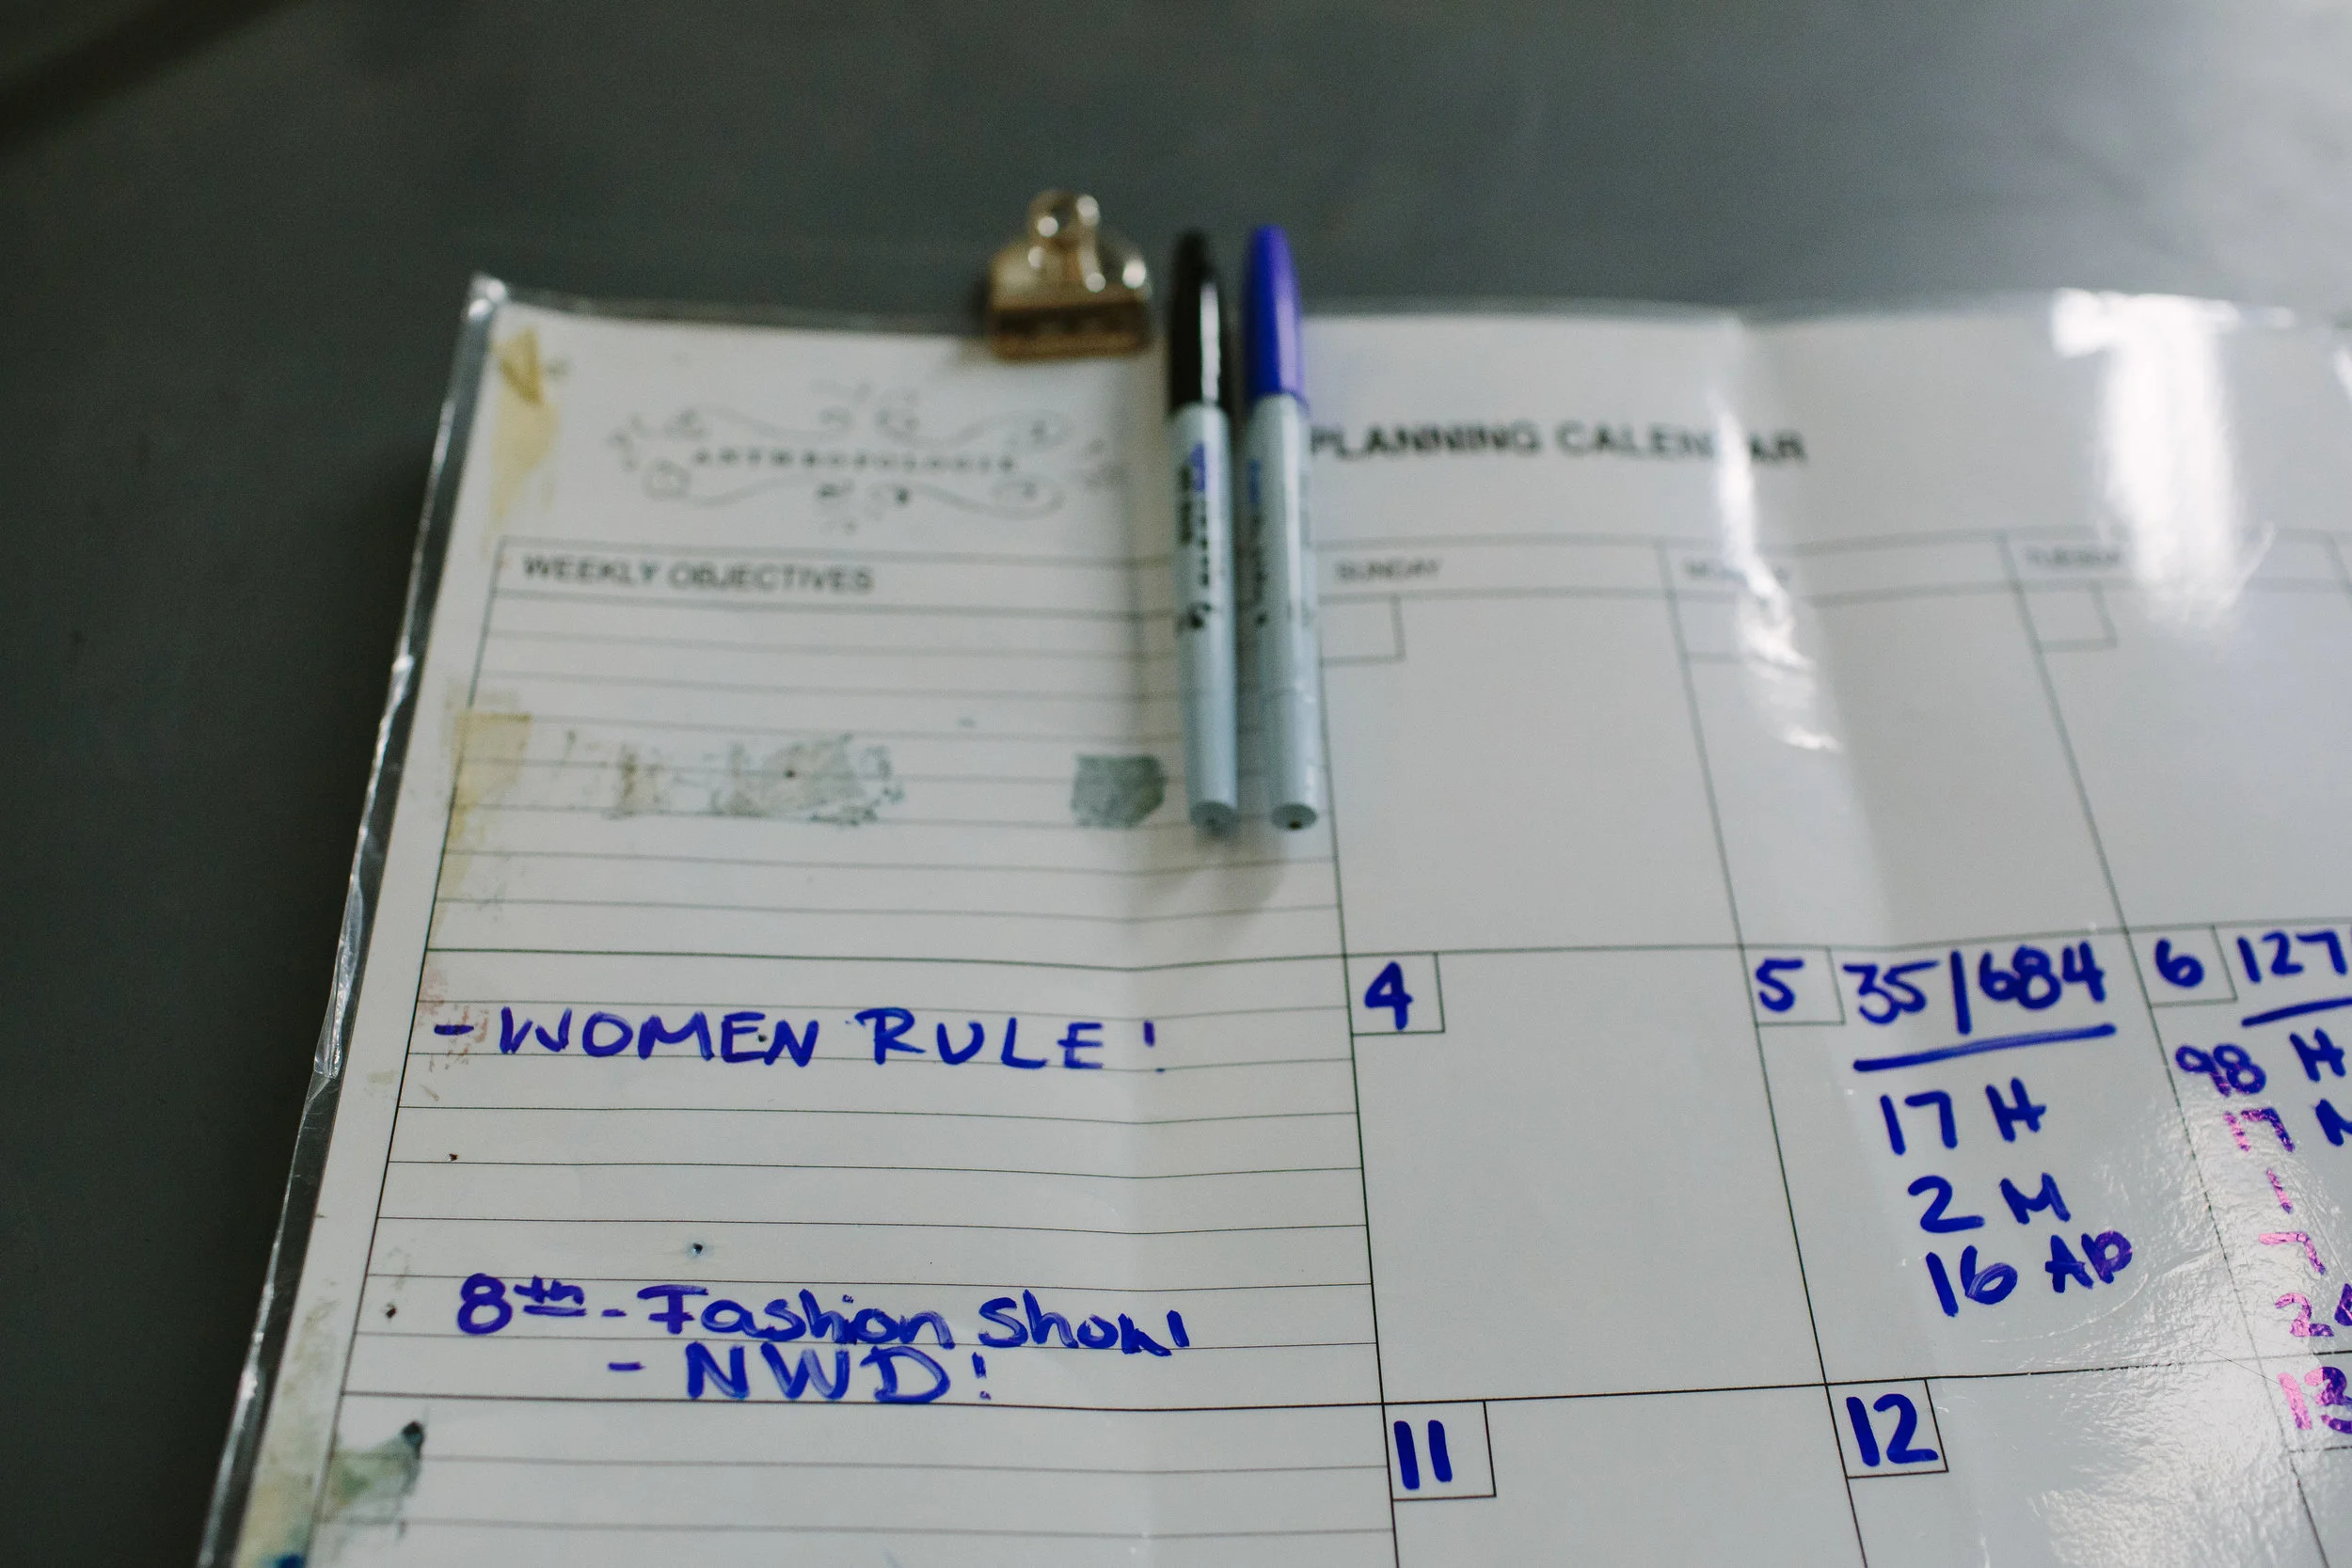 ANTHROPOLOGIE
PLANNING CALENDAR
WEEKLY OBJECTIVES
SUNDAY
MONDAY
TUESDAY
- WOMEN RULE!
8th - Fashion Show
- NWD!
4
5
35/684
17 H
2 M
16 AD
6
127
98 H
17
1
7
13
11
12